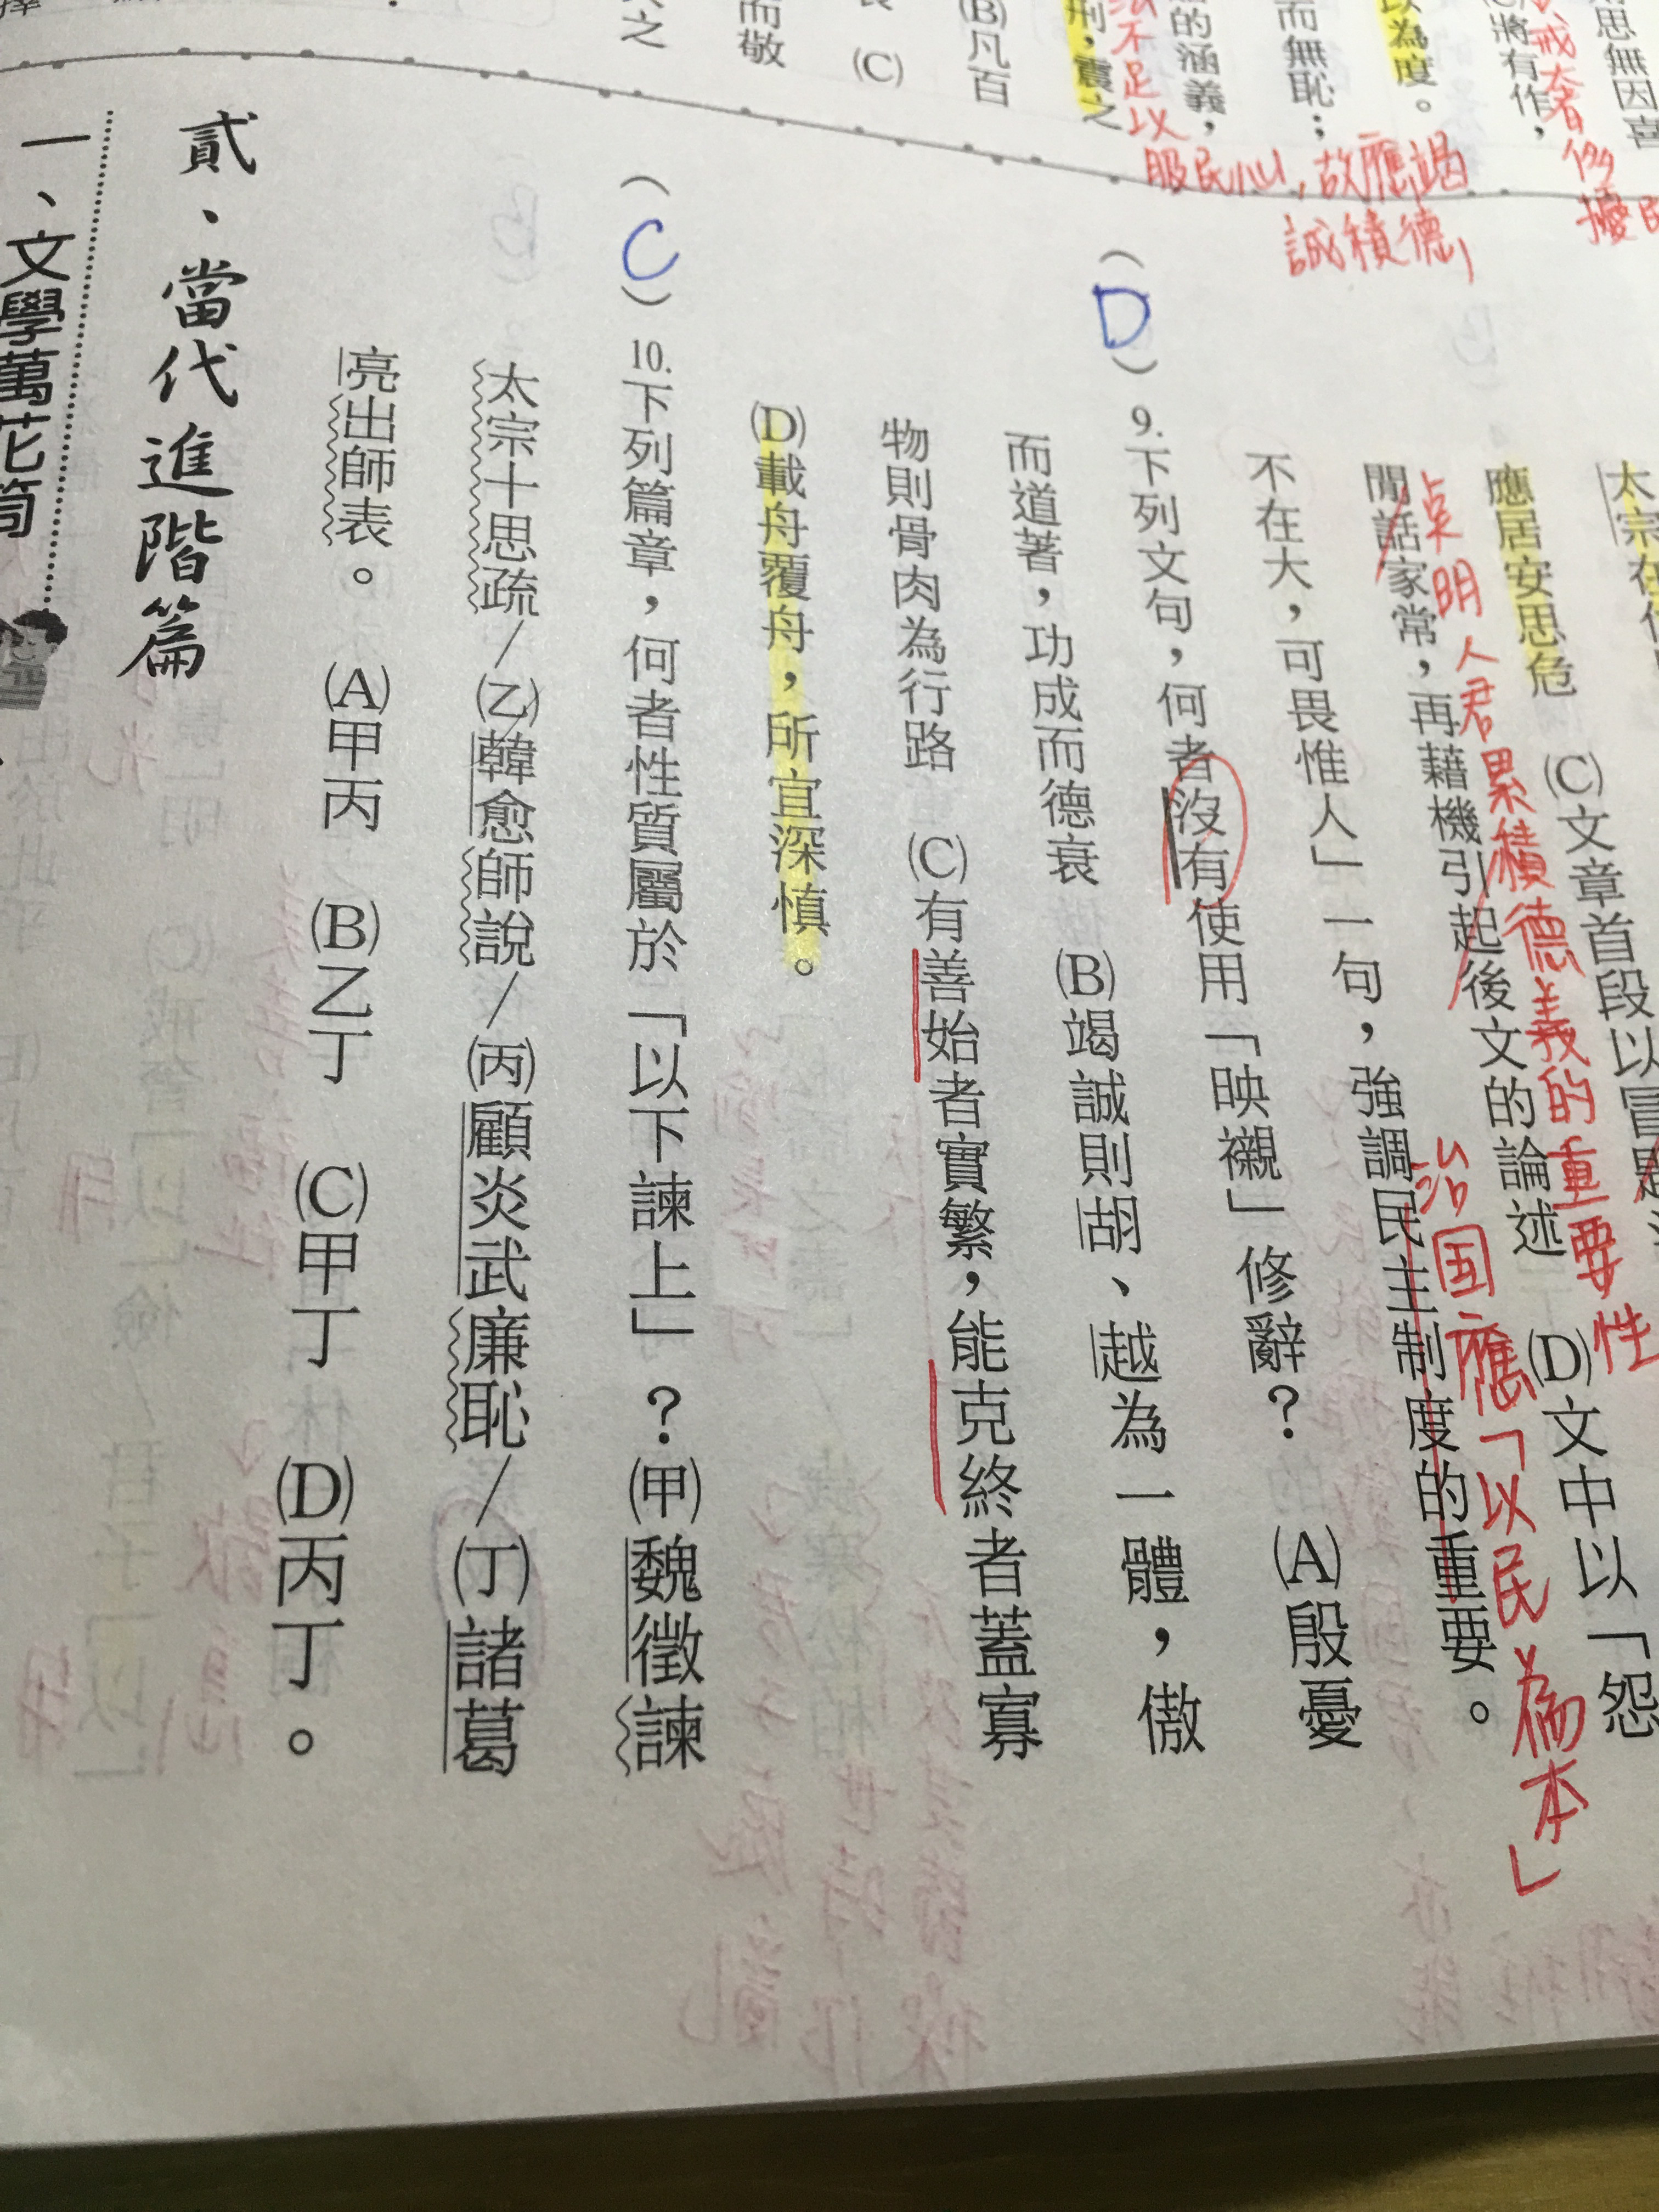 思無因喜
將有作，
戒奢侈
擾民
以為度。
而無恥；
的涵義，
不足以
服民心，故應竭
誠積德，
刑，震之
(B)凡百
(C)
而敬
之
太宗在
(C)文章首段以冒題
累積德義的重要性
應居安思危
(D)文中以「怨
桌明人君
閒話家常，再藉機引起後文的論述
治國應「以民為本」
不在大，可畏惟人」一句，強調民主制度的重要。
(D)
9.下列文句，何者沒有使用「映襯」修辭？　(A)殷憂
而道著，功成而德衰　(B)竭誠則胡、越為一體，傲
物則骨肉為行路　(C)有善始者實繁，能克終者蓋寡
(D)載舟覆舟，所宜深慎。
(C)
10.下列篇章，何者性質屬於「以下諫上」？(甲)魏徵諫
太宗十思疏／(乙)韓愈師說／(丙)顧炎武廉恥／(丁)諸葛
亮出師表。　(A)甲丙　(B)乙丁　(C)甲丁　(D)丙丁。
貳、當代進階篇
一、文學萬花筒